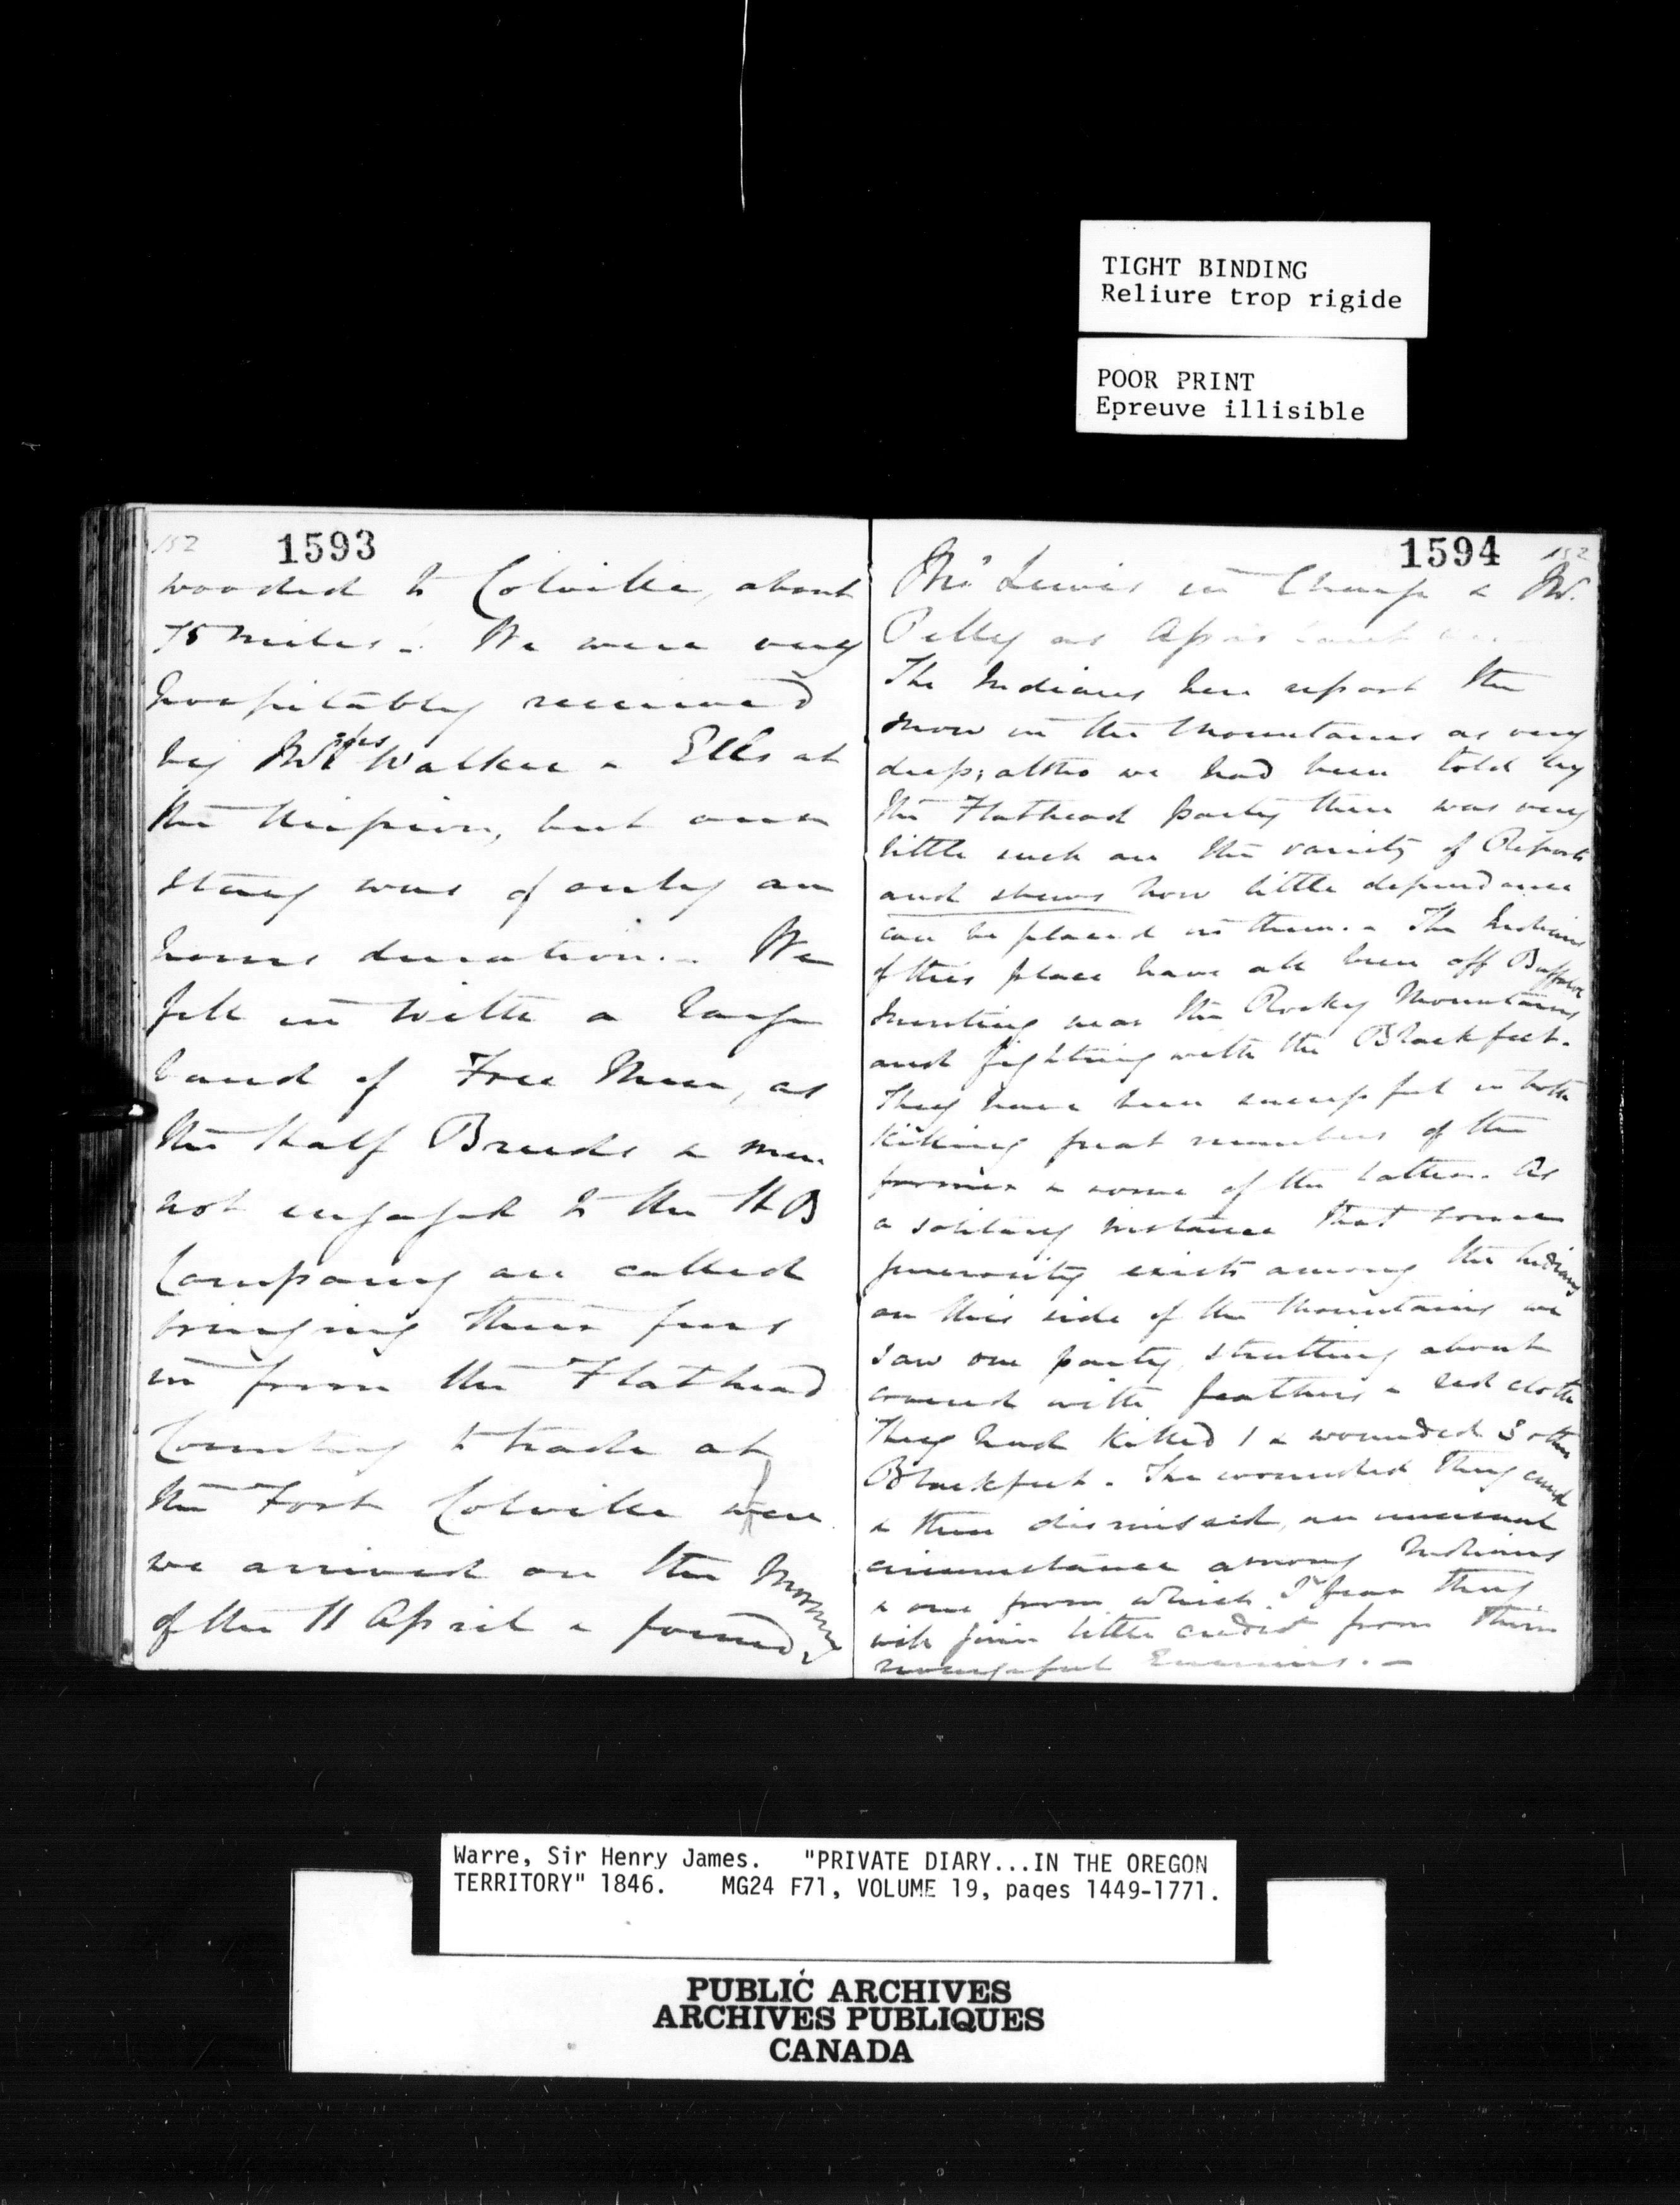 TIGHT BINDING
Reliure trop rigide
POOR PRINT
Epreuve illisible
152
1593
wooded to Colville, about
75 miles. We were very
hospitably received
by Walker & Ells at
the Mission, but our
stay was of only an
hours duration.. We
fell in with a large
band of Free Men, as
the Half Breeds & men
not engaged to the HB
Company are called
bringing their furs
in from the Flathead
Country to trade at
the Fort Colville were
we arrived on the Morning
of the 11 April & found
1594
152
Mr Lewis in Charge & Mr.
Pelly as
The Indians here report the
snow in the Mountains as very
deep; altho we had been told by
the Flathead party there was very
little such are the variety of Reports
and shews how little dependance
can be placed in them.. The Indians
of this place have all been off Buffaloe
hunting near the Rocky Mountains
and fighting with the Blackfeet.
They have been successful in both
killing great numbers of the
former & some of the latter. As
a solitary instance that some
generosity exists among the Indians
on this side of the Mountains we
saw one party strutting about
covered with feathers & red cloth
They had killed 1 & wounded 3 other
Blackfeet. The wounded they cured
& then dismissed, an unusual
circumstance among Indians
& one from which I fear they
will gain little credit from their
revengeful Enemies.—
Warre, Sir Henry James. "PRIVATE DIARY...IN THE OREGON
TERRITORY" 1846. MG24 F71, VOLUME 19, pages 1449-1771.
PUBLIC ARCHIVES
ARCHIVES PUBLIQUES
CANADA